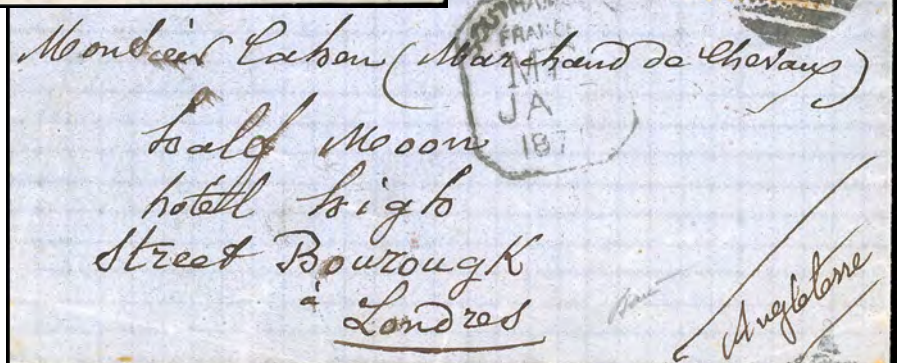 Monsieur Cahen (Marchand de Chevaux)
half Moon
hôtel high
Street Bourougk
à
Londres
Angleterre
FRANCE
JA
187